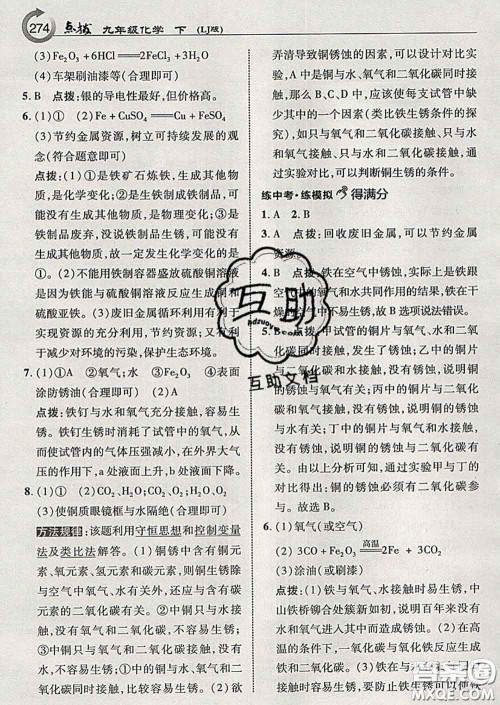 274 点拨 九年级化学 下 (LJ版)
(3)Fe₂O₃+6HCl══2FeCl₃+3H₂O
(4)车架刷油漆等(合理即可)
5. B 点拨：银的导电性最好，但价格高。
6. (1)① (2)Fe+CuSO₄══Cu+FeSO₄
(3)节约金属资源，树立可持续发展的观
念(符合题意即可)
点拨：(1)①是铁矿石炼铁，生成其他物
质，是化学变化；②是生铁制成品，没有
生成其他物质，是物理变化；③是生铁制
品报废弃，没发生变化；④是铁制品锈蚀，
有其他物质生成，所以发生化学变化的是
①。(2)不能用铁制容器盛放硫酸铜溶液
的原因是铁能与硫酸铜溶液反应生成铜和
硫酸亚铁。(3)废旧金属循环利用有利于
实现资源的充分利用，节约金属资源，有利
于减少对环境的污染，保护生态环境。
7. (1)①水 ②氧气；水 ③Fe₂O₃ ④表面
涂防锈油(合理即可)
点拨：铁钉与水和氧气充分接触，容易生
锈。铁钉生锈时消耗了试管中的氧气，从
而使试管内的气体压强减小，在外界大气
压的作用下，a处液面上升，b处液面下降。
8. (1)CO₂、H₂O (2)CO₂、O₂、H₂O；②③
(3)使铜质眼镜框与水隔绝(合理即可)
方法规律：该题利用守恒思想和控制变量
法及类比法解答。(1)铜锈中含有铜元
素、氧元素、氢元素和碳元素，则铜生锈除
与空气中氧气、水有关外，还与含有碳元
素的二氧化碳有关。①中铜只与氧气和
二氧化碳接触，不易生锈；②中铜只与水、
氧气接触，不易生锈；③中铜只与水和二
氧化碳接触，不易生锈。(2)欲
弄清导致铜锈蚀的因素，必须控制变量。
A中，由于水、氧气和二氧化碳同时接
触，那么B、C、D中，应使每支试管中缺
少其中的一个因素(类比铁生锈条件的
探究)，如只与氧气和二氧化碳接触、只与
水和氧气接触、只与水和二氧化碳接触，
对比实验，可以判断铜生锈的条件。
练中考·练模拟 得满分
1. A 2. B
3. A 点拨：回收废旧金属，可以节约金属
资源。
4. B 点拨：铁在空气中锈蚀，实际上是铁跟
空气中的氧气和水共同作用，铁在干
燥的空气中不易生锈，故B选项说法错误。
5. B 点拨：甲试管的铜片与水、氧气和二氧
化碳同时接触，发生了锈蚀；乙中的铜片
与二氧化碳和水接触，没有锈蚀，说明铜
的锈蚀与氧气有关；丙中的铜片与二氧化
碳和氧气接触，没有锈蚀，说明铜的锈蚀
与水有关；丁中的铜片与氧气和水接触，
没有锈蚀，说明铜的锈蚀与二氧化碳有
关。所以，说明铜的锈蚀一定与二氧化碳
有关，必须要完成的实验是甲和丁的对比
实验。本题易错选，错因是没有弄清题
目要求。题目是证明铜的锈蚀必须有二
氧化碳参与。故选B。
6. (1)氧气(或空气)
(2)3CO+Fe₂O₃═高温═2Fe+3CO₂
(3)涂油(或刷漆)
点拨：铁与氧气、水接触时易生锈，中
山铁桥铆合处仍簇新如初，说明百年来没有
水进入其中而造成锈蚀。(2)在高
温的条件下，一氧化碳与氧化铁反应生成
铁和二氧化碳。(3)铁与氧气、水接触时
易生锈，可以使铁与
互助
hdzuoye.com
互助文档
答案圈